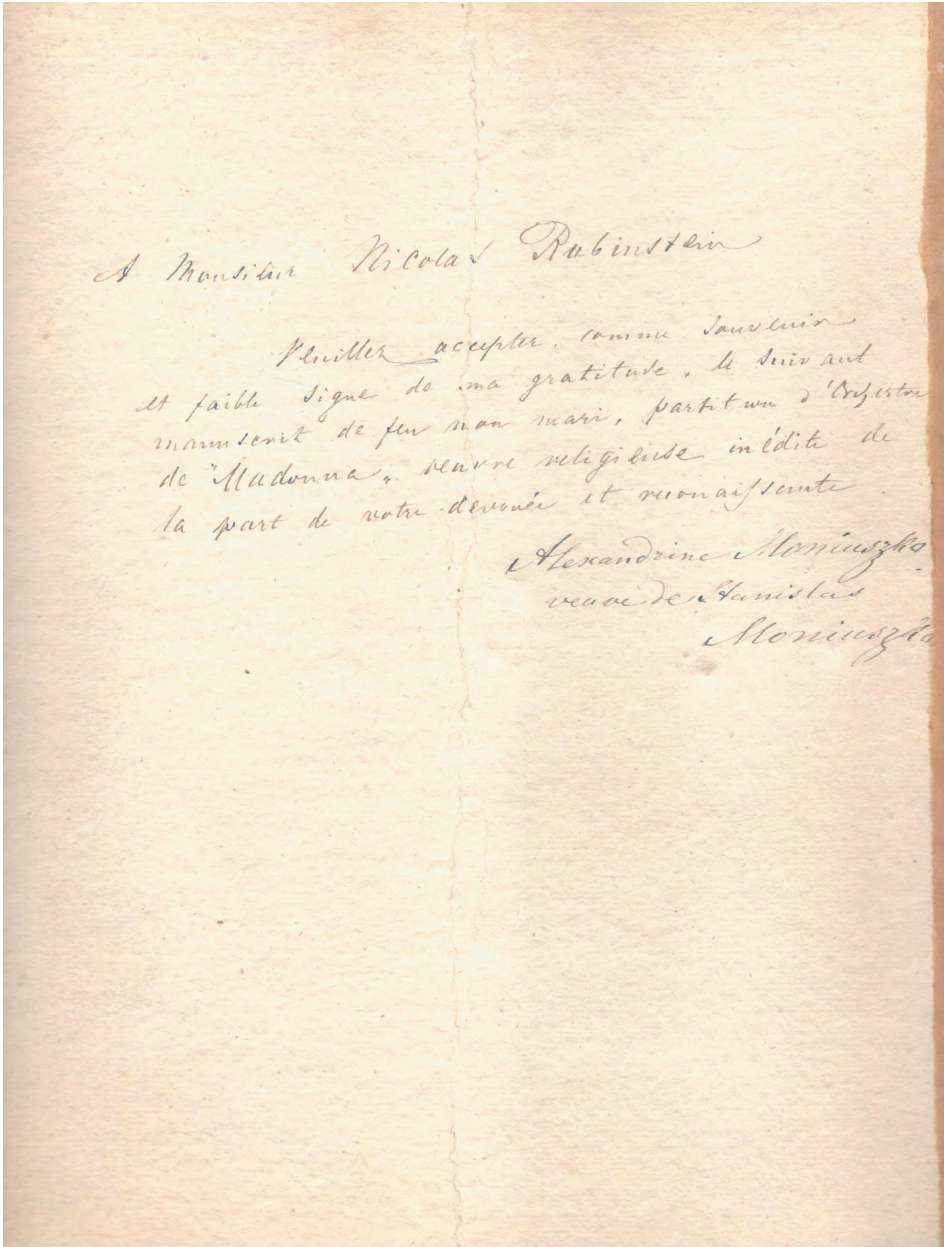 A Monsieur Nicolas Rubinstein
Veuillez accepter, comme souvenir
et faible signe de ma gratitude, le suivant
manuscrit de feu mon mari, partition d'Orchestre
de "Madonna„ oeuvre religieuse inédite de
la part de votre dévouée et reconaissante
Alexandrine Moniuszko
veuve de Stanislas
Moniuszko